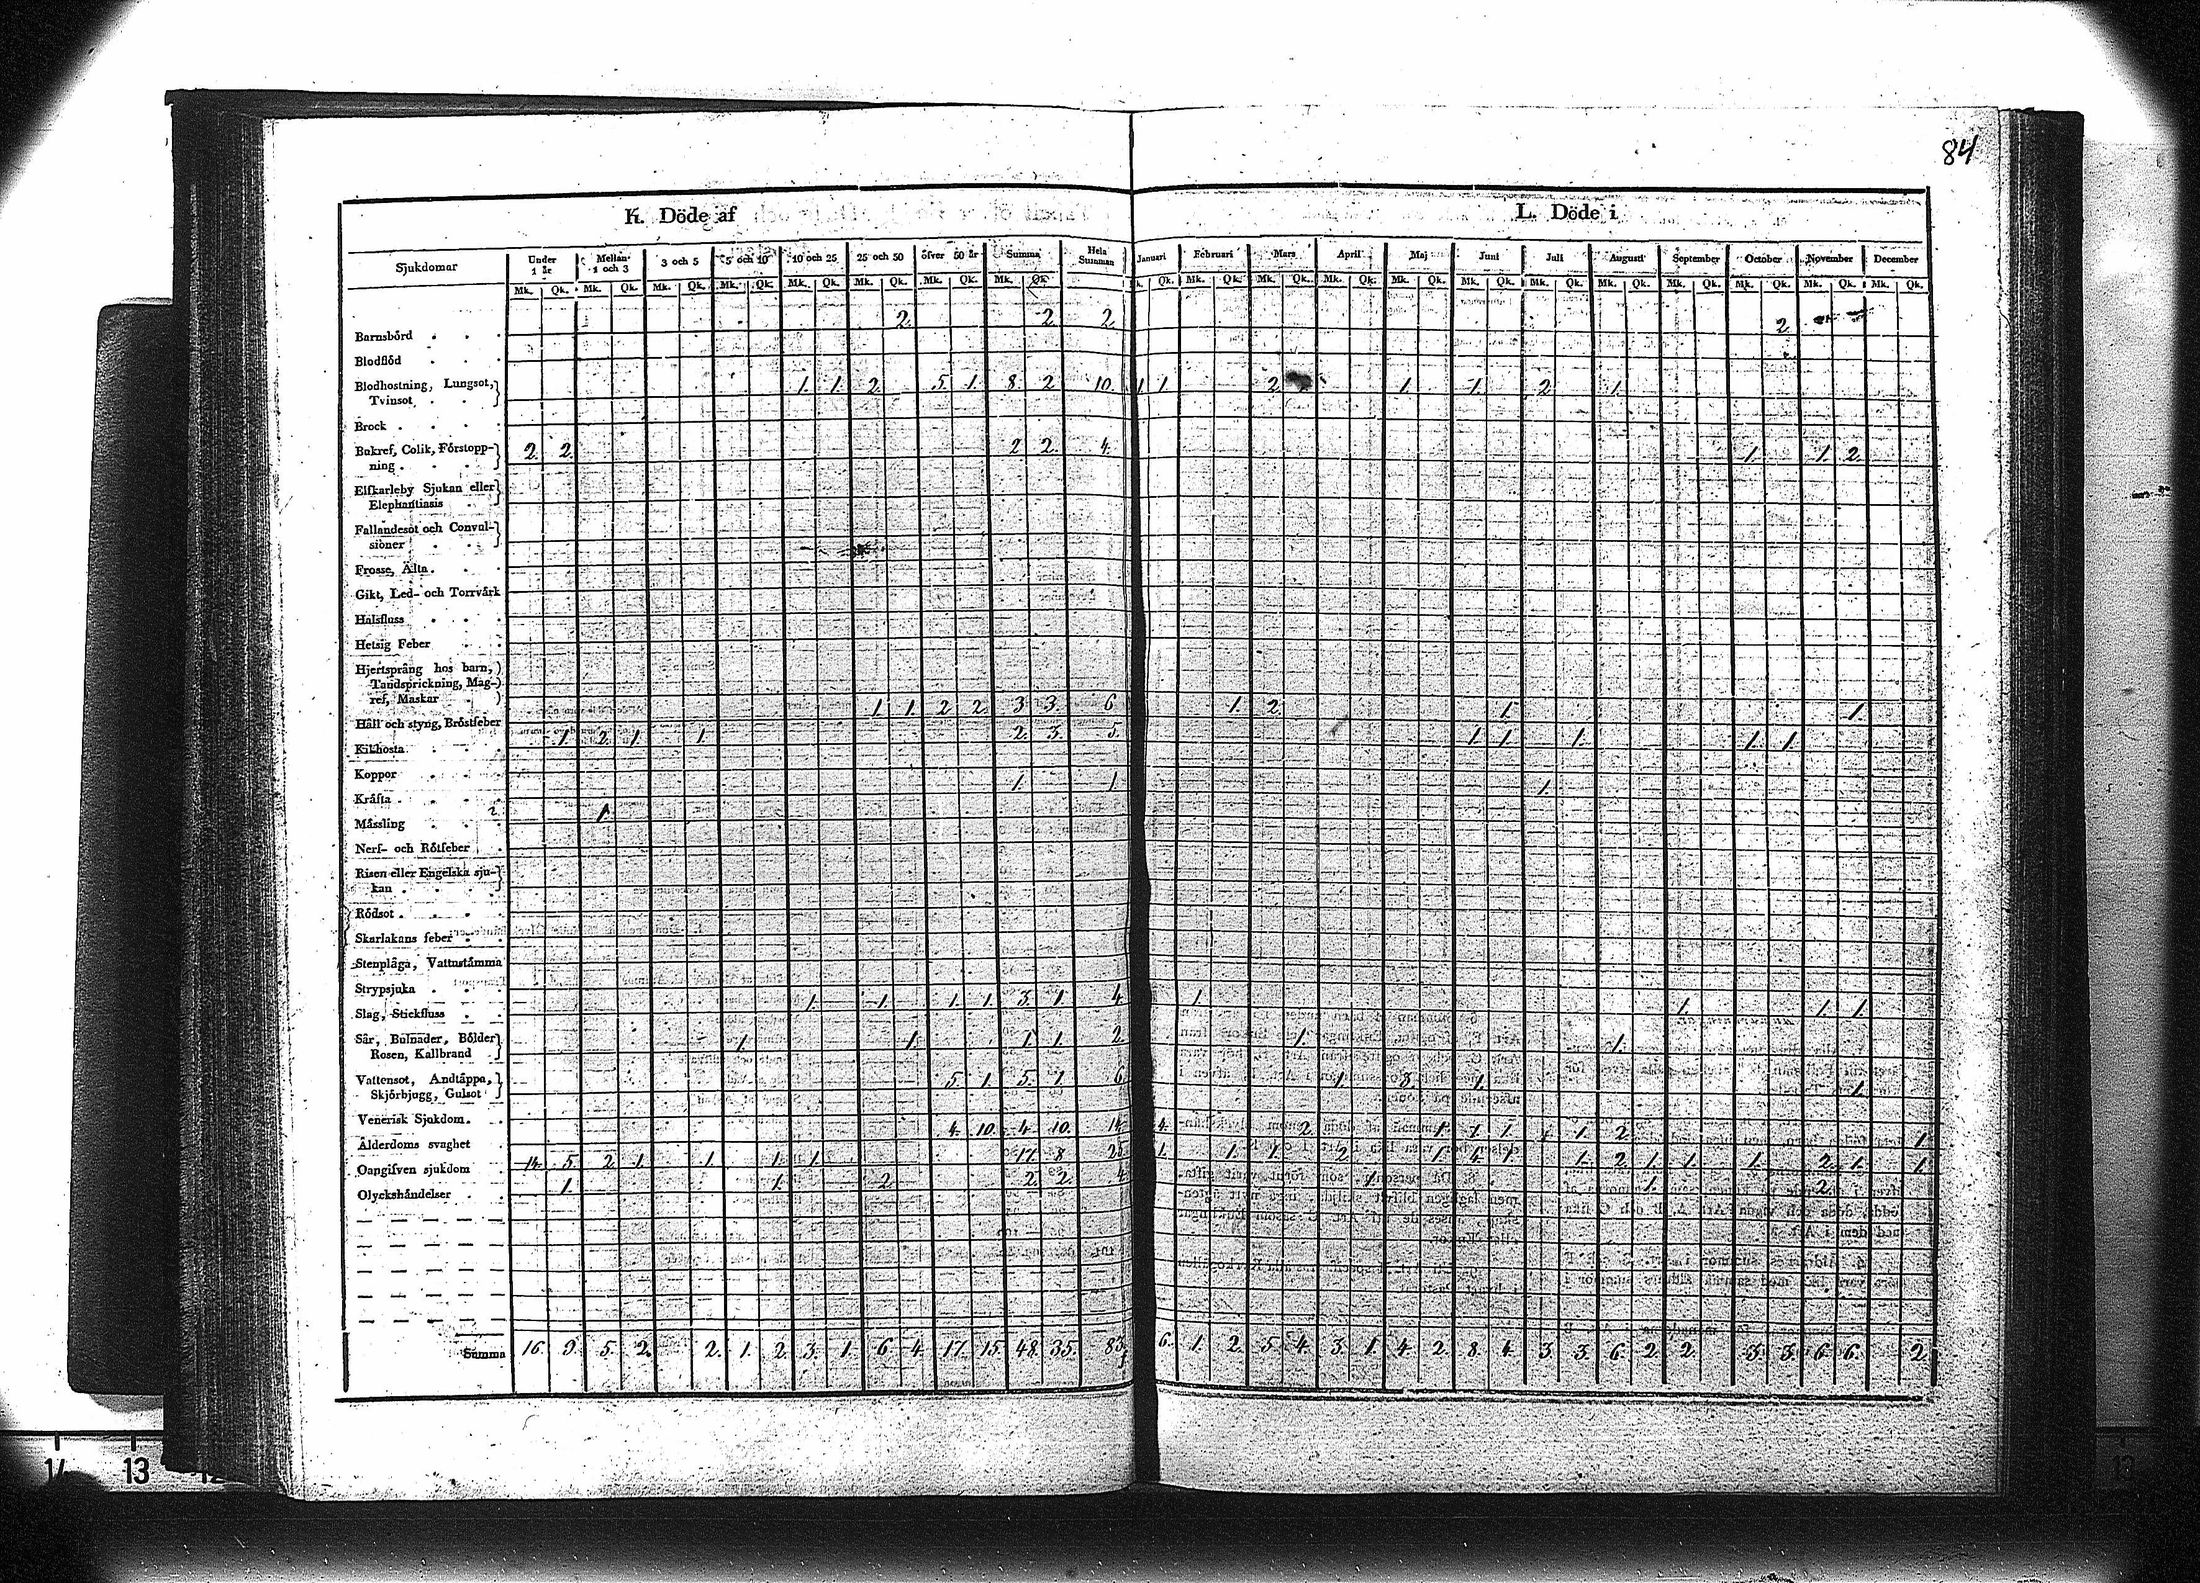 84
K. Döde af
L. Döde i
Sjukdomar Under 1 år Mellan 1 och 3 3 och 5 5 och 10 10 och 25 25 och 50 öfver 50 år Summa Hela Summan Januari Februari Mars April Maj Juni Juli Augusti September October November December
Mk. Qk. Mk. Qk. Mk. Qk. Mk. Qk. Mk. Qk. Mk. Qk. Mk. Qk. Mk. Qk. k. Qk. Mk. Qk. Mk. Qk. Mk. Qk. Mk. Qk. Mk. Qk. Mk. Qk. Mk. Qk. Mk. Qk. Mk. Qk. Mk. Qk. Mk. Qk.
Barnsbörd 2. 2. 2. 2.
Blodflöd
Blodhostning, Lungsot, 1. 1. 2. 5. 1. 8. 2. 10. 1. 1. 2. 1. 1. 2. 1.
Tvinsot
Brock
Bukref, Colik, Förstopp- 2. 2. 2. 2. 4. 1. 1. 2.
ning
Elfkarleby Sjukan eller
Elephantiasis
Fallandesot och Convul-
sioner
Frosse, Älta
Gikt, Led- och Torrvärk
Halsfluss
Hetsig Feber
Hjertsprång hos barn,
Tandsprickning, Mag-
ref, Maskar
Håll och styng, Bröstfeber 1. 1. 2. 2. 3. 3. 6 1. 2. 1. 1.
Kikhosta 1. 2. 1. 1. 2. 3. 5. 1. 1. 1. 1. 1.
Koppor
Kräfta 1. 1 1.
Mässling 1.
Nerf- och Rötfeber
Risen eller Engelska sju-
kan
Rödsot
Skarlakans feber
Stenplåga, Vattustämma
Strypsjuka
Slag, Stickfluss 1. 1. 1. 1. 3. 1. 4. 1. 1. 1. 1.
Sår, Bulnader, Bölder 1. 1. 1. 1. 2. 1. 1.
Rosen, Kallbrand
Vattensot, Andtäppa, 5. 1. 5. 1 6. 1. 3. 1. 1.
Skjörbjugg, Gulsot
Venerisk Sjukdom
Ålderdoms svaghet 4. 10. 4. 10. 14. 4. 2. 1. 1. 1. 1. 2. 1.
Oangifven sjukdom 14. 5. 2. 1. 1. 1. 1. 17. 8. 25. 1. 1. 1. 2. 1. 4. 1. 1. 2. 1. 1. 1. 2. 1. 1.
Olyckshändelser 1. 1. 2. 2. 2. 4. 1. 1. 2.
Summa 16. 9. 5. 2. 2. 1. 2. 3. 1. 6. 4. 17. 15. 48. 35. 83. 6. 1. 2. 5. 4. 3. 1. 4. 2. 8. 4. 3. 3. 6. 2. 2. 3. 3. 6. 6. 2.
14 13